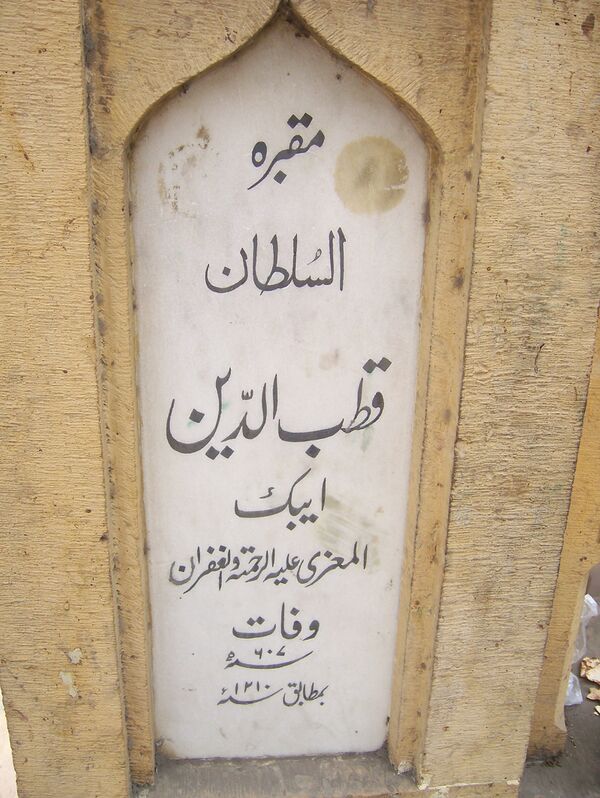 مقبرہ
السُلطان
قطب الدّین
ایبک
المعزی علیہ الرحمتہ والغفران
وفات
سنہ ٦٠٧ ھ
بمطابق سنہ ١٢١٠ ء